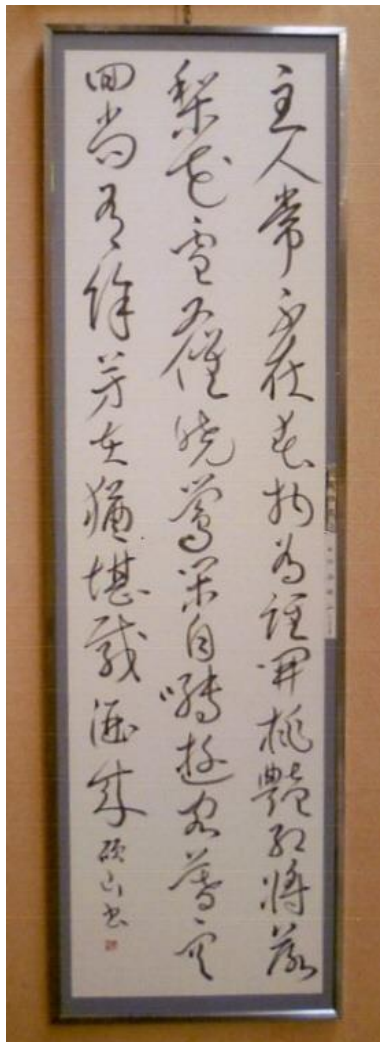 主人常不在春物為誰開桃艶紅將落
梨花雪又催曉鶯閑自囀遊客暮空
回尚有餘芳在猶堪載酒來 碩山書